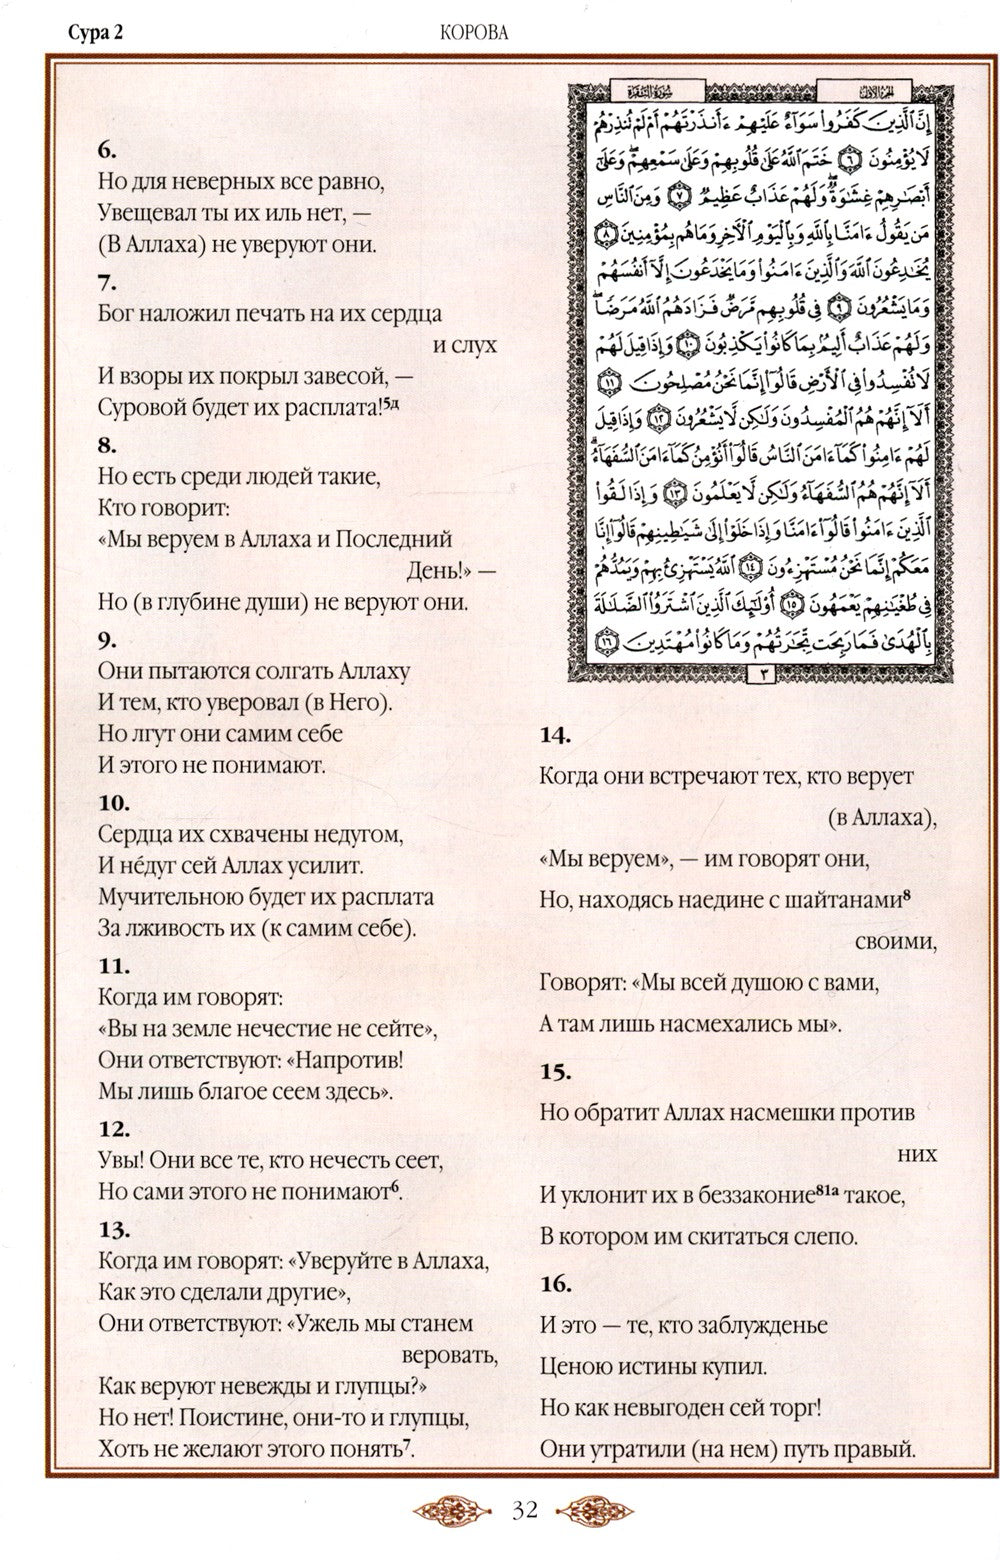 Сура 2
КОРОВА
6.
Но для неверных все равно,
Увещевал ты их иль нет, —
(В Аллаха) не уверуют они.
7.
Бог наложил печать на их сердца
и слух
И взоры их покрыл завесой, —
Суровой будет их расплата!⁵д
8.
Но есть среди людей такие,
Кто говорит:
«Мы веруем в Аллаха и Последний
День!» —
Но (в глубине души) не веруют они.
9.
Они пытаются солгать Аллаху
И тем, кто уверовал (в Него).
Но лгут они самим себе
И этого не понимают.
10.
Сердца их схвачены недугом,
И не́дуг сей Аллах усилит.
Мучительною будет их расплата
За лживость их (к самим себе).
11.
Когда им говорят:
«Вы на земле нечестие не сейте»,
Они ответствуют: «Напротив!
Мы лишь благое сеем здесь».
12.
Увы! Они все те, кто нечесть сеет,
Но сами этого не понимают⁶.
13.
Когда им говорят: «Уверуйте в Аллаха,
Как это сделали другие»,
Они ответствуют: «Ужель мы станем
веровать,
Как веруют невежды и глупцы?»
Но нет! Поистине, они-то и глупцы,
Хоть не желают этого понять⁷.
سُورَةُ البَقَرَةِ
الجزء الأول
إِنَّ ٱلَّذِينَ كَفَرُوا۟ سَوَآءٌ عَلَيْهِمْ ءَأَنذَرْتَهُمْ أَمْ لَمْ تُنذِرْهُمْ
لَا يُؤْمِنُونَ ٦ خَتَمَ ٱللَّهُ عَلَىٰ قُلُوبِهِمْ وَعَلَىٰ سَمْعِهِمْ ۖ وَعَلَىٰٓ
أَبْصَـٰرِهِمْ غِشَـٰوَةٌ ۖ وَلَهُمْ عَذَابٌ عَظِيمٌ ٧ وَمِنَ ٱلنَّاسِ
مَن يَقُولُ ءَامَنَّا بِٱللَّهِ وَبِٱلْيَوْمِ ٱلْـَٔاخِرِ وَمَا هُم بِمُؤْمِنِينَ ٨
يُخَـٰدِعُونَ ٱللَّهَ وَٱلَّذِينَ ءَامَنُوا۟ وَمَا يَخْدَعُونَ إِلَّآ أَنفُسَهُمْ
وَمَا يَشْعُرُونَ ٩ فِى قُلُوبِهِم مَّرَضٌ فَزَادَهُمُ ٱللَّهُ مَرَضًا ۖ
وَلَهُمْ عَذَابٌ أَلِيمٌۢ بِمَا كَانُوا۟ يَكْذِبُونَ ١٠ وَإِذَا قِيلَ لَهُمْ
لَا تُفْسِدُوا۟ فِى ٱلْأَرْضِ قَالُوٓا۟ إِنَّمَا نَحْنُ مُصْلِحُونَ ١١
أَلَآ إِنَّهُمْ هُمُ ٱلْمُفْسِدُونَ وَلَـٰكِن لَّا يَشْعُرُونَ ١٢ وَإِذَا قِيلَ
لَهُمْ ءَامِنُوا۟ كَمَآ ءَامَنَ ٱلنَّاسُ قَالُوٓا۟ أَنُؤْمِنُ كَمَآ ءَامَنَ ٱلسُّفَهَآءُ ۗ
أَلَآ إِنَّهُمْ هُمُ ٱلسُّفَهَآءُ وَلَـٰكِن لَّا يَعْلَمُونَ ١٣ وَإِذَا لَقُوا۟
ٱلَّذِينَ ءَامَنُوا۟ قَالُوٓا۟ ءَامَنَّا وَإِذَا خَلَوْا۟ إِلَىٰ شَيَـٰطِينِهِمْ قَالُوٓا۟ إِنَّا
مَعَكُمْ إِنَّمَا نَحْنُ مُسْتَهْزِءُونَ ١٤ ٱللَّهُ يَسْتَهْزِئُ بِهِمْ وَيَمُدُّهُمْ
فِى طُغْيَـٰنِهِمْ يَعْمَهُونَ ١٥ أُو۟لَـٰٓئِكَ ٱلَّذِينَ ٱشْتَرَوُا۟ ٱلضَّلَـٰلَةَ
بِٱلْهُدَىٰ فَمَا رَبِحَت تِّجَـٰرَتُهُمْ وَمَا كَانُوا۟ مُهْتَدِينَ ١٦
٣
14.
Когда они встречают тех, кто верует
(в Аллаха),
«Мы веруем», — им говорят они,
Но, находясь наедине с шайтанами⁸
своими,
Говорят: «Мы всей душою с вами,
А там лишь насмехались мы».
15.
Но обратит Аллах насмешки против
них
И уклонит их в беззаконие⁸¹ᵃ такое,
В котором им скитаться слепо.
16.
И это — те, кто заблужденье
Ценою истины купил.
Но как невыгоден сей торг!
Они утратили (на нем) путь правый.
32